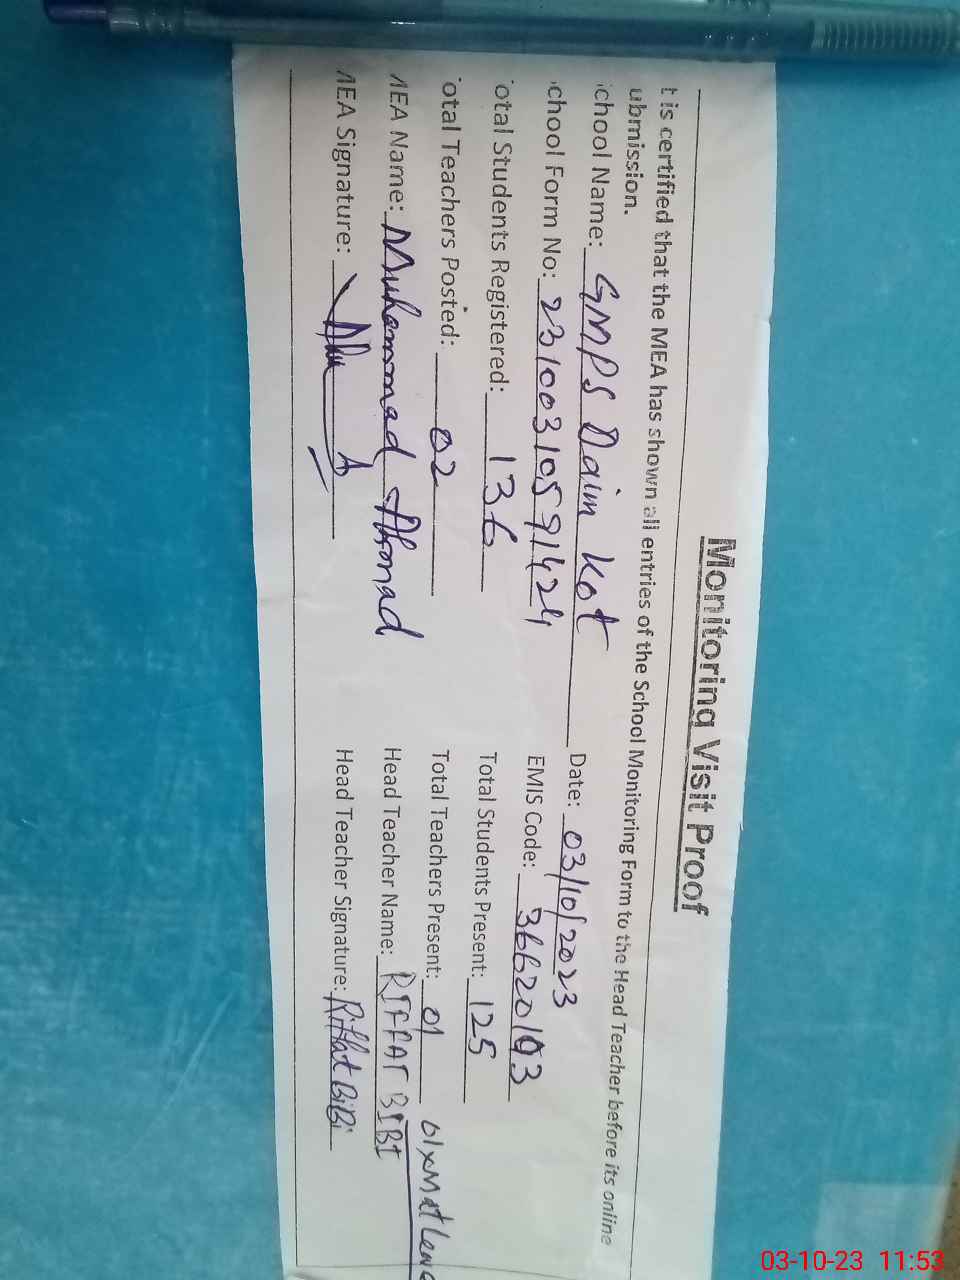 Monitoring Visit Proof
t is certified that the MEA has shown all entries of the School Monitoring Form to the Head Teacher before its online
ubmission.
chool Name: GMPS Daim Kot Date: 03/10/2023
chool Form No: 23100310591424 EMIS Code: 36620193
otal Students Registered: 136 Total Students Present: 125
otal Teachers Posted: 02 Total Teachers Present: 01 01xMat Leave
MEA Name: Muhammad Ahmad Head Teacher Name: RIFFAT BIBI
MEA Signature: Head Teacher Signature: Riffat BiBi
03-10-23 11:53